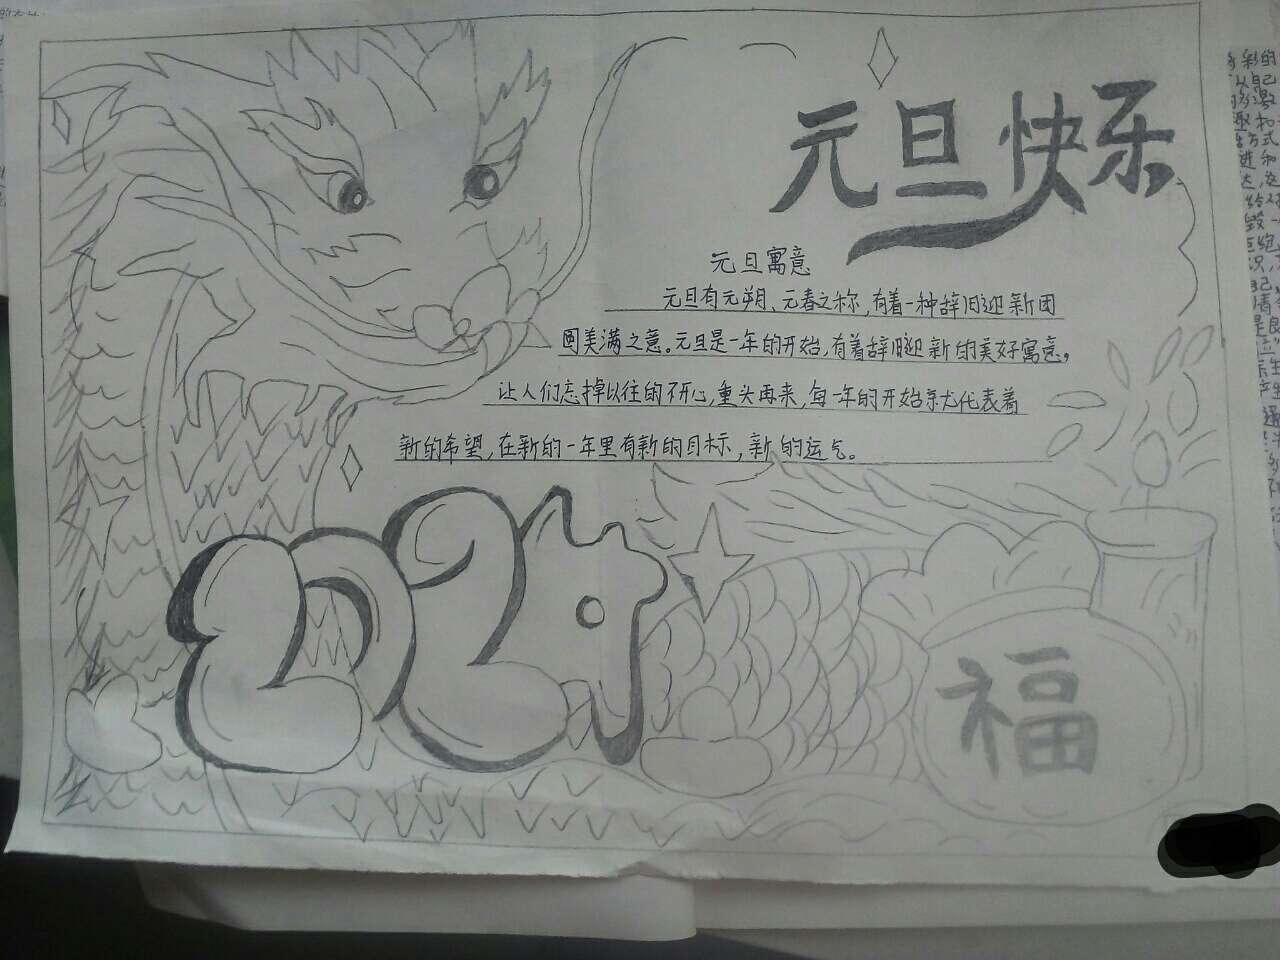 元旦快乐
元旦寓意
元旦有元朔、元春之称,有着一种辞旧迎新团
圆美满之意。元旦是一年的开始,有着辞旧迎新的美好寓意。
让人们忘掉以往的不开心,重头再来,每一年的开始就代表着
新的希望,在新的一年里有新的目标,新的运气。
2024
福